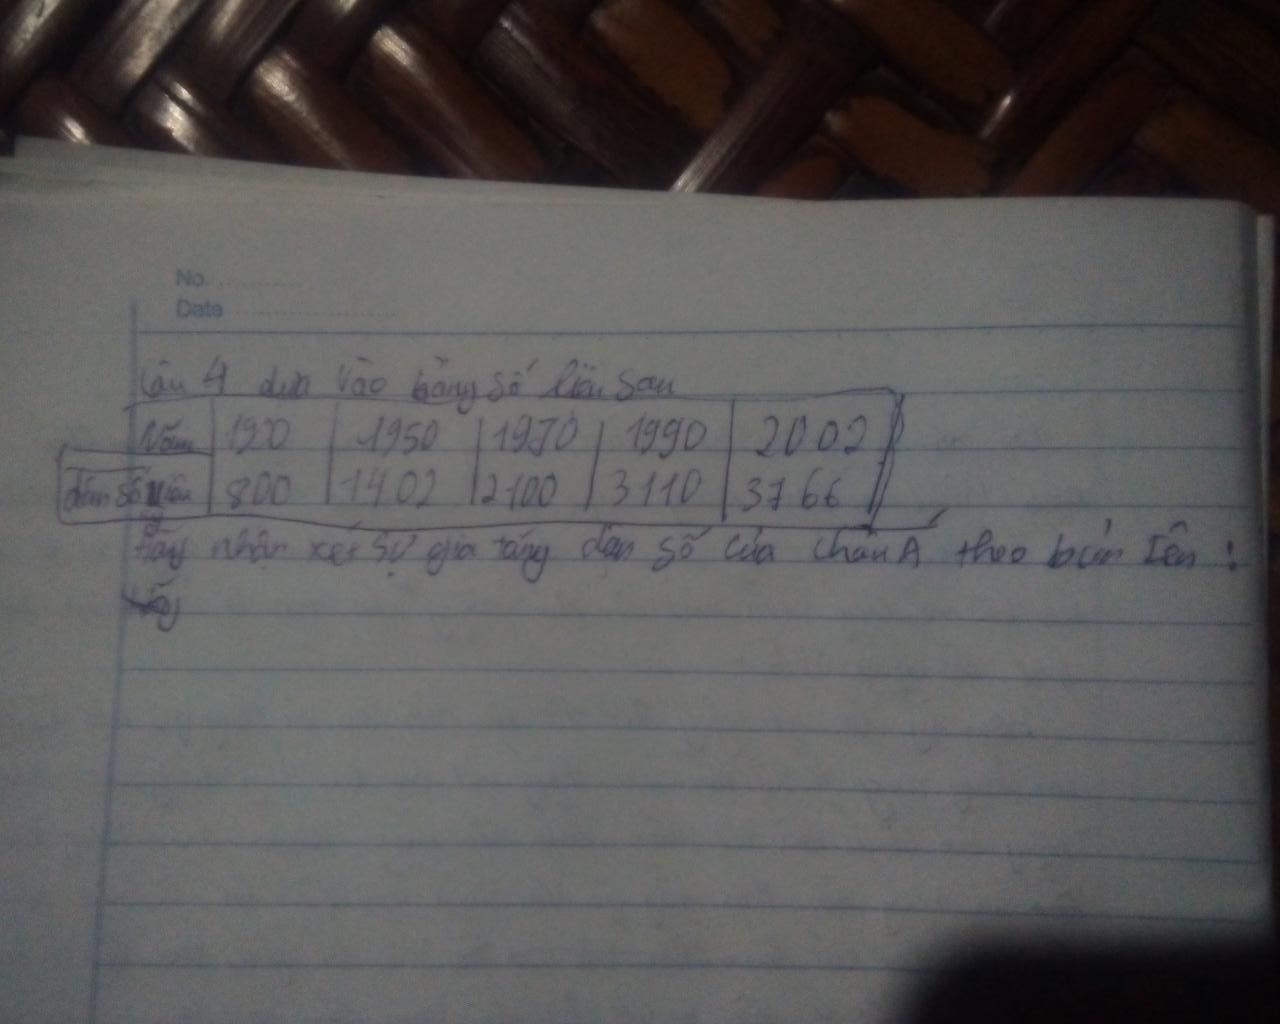 No.
Date
Câu 4 dựa vào bảng số liệu sau
Năm 1900 1950 1970 1990 2002
dân số triệu 800 1402 2100 3110 3766
Hãy nhận xét sự gia tăng dân số của Châu A theo bản trên :